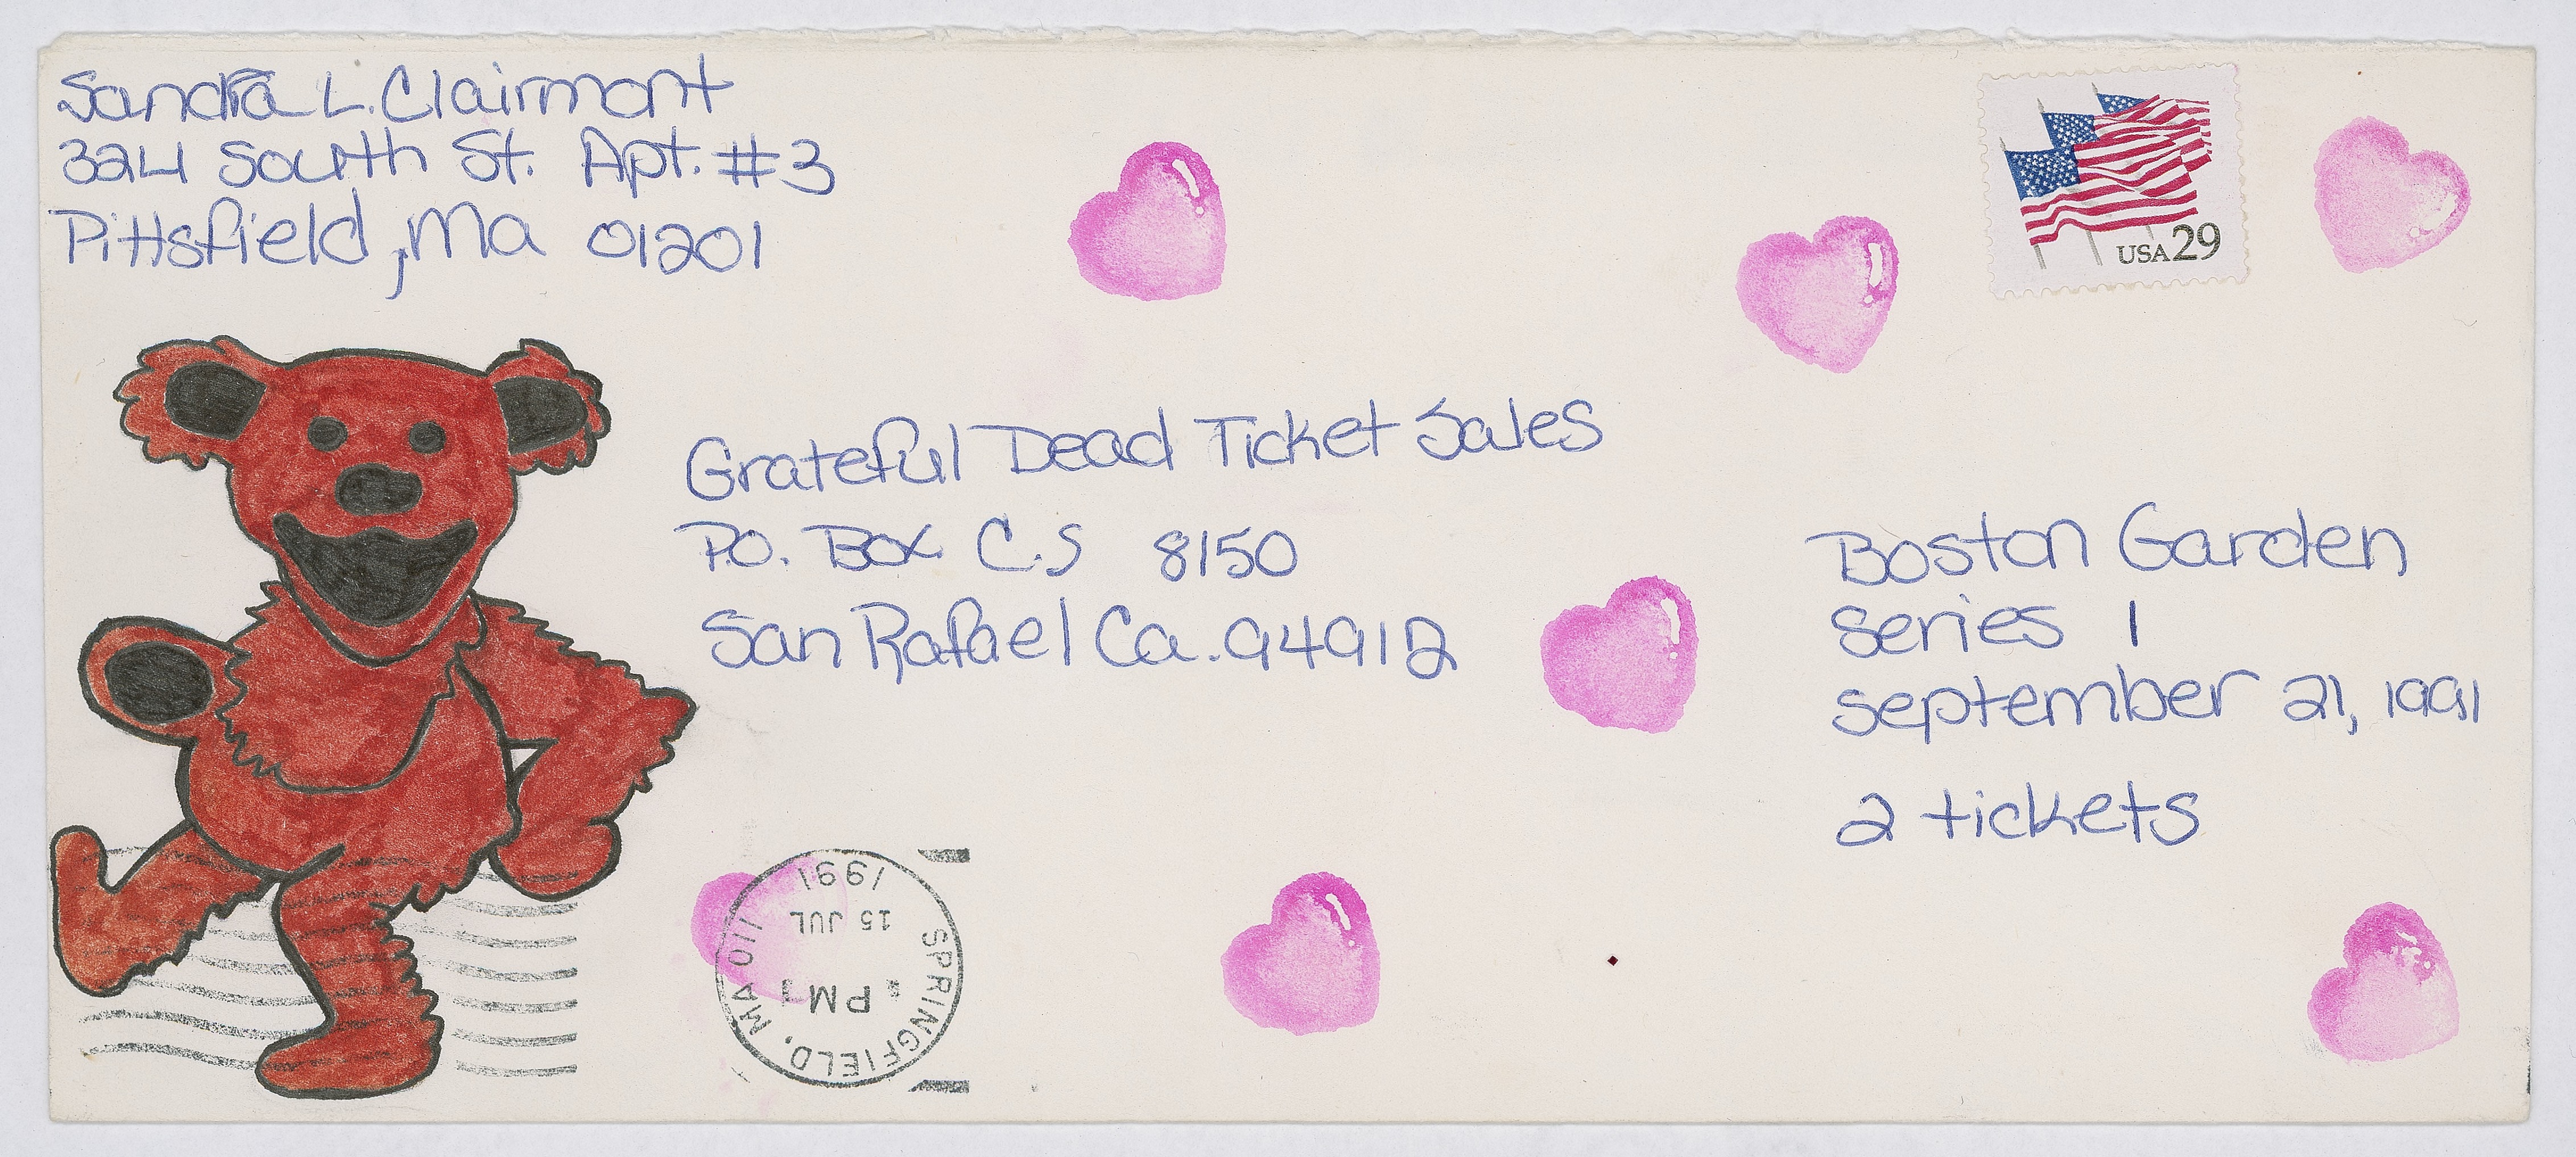 Sandra L. Clairmont
324 South St. Apt. #3
Pittsfield, Ma 01201
USA 29
Grateful Dead Ticket Sales
P.O. Box C.S 8150
San Rafael Ca. 94912
Boston Garden
Series 1
September 21, 1991
2 tickets
SPRINGFIELD, MA 011
PM
15 JUL
1991